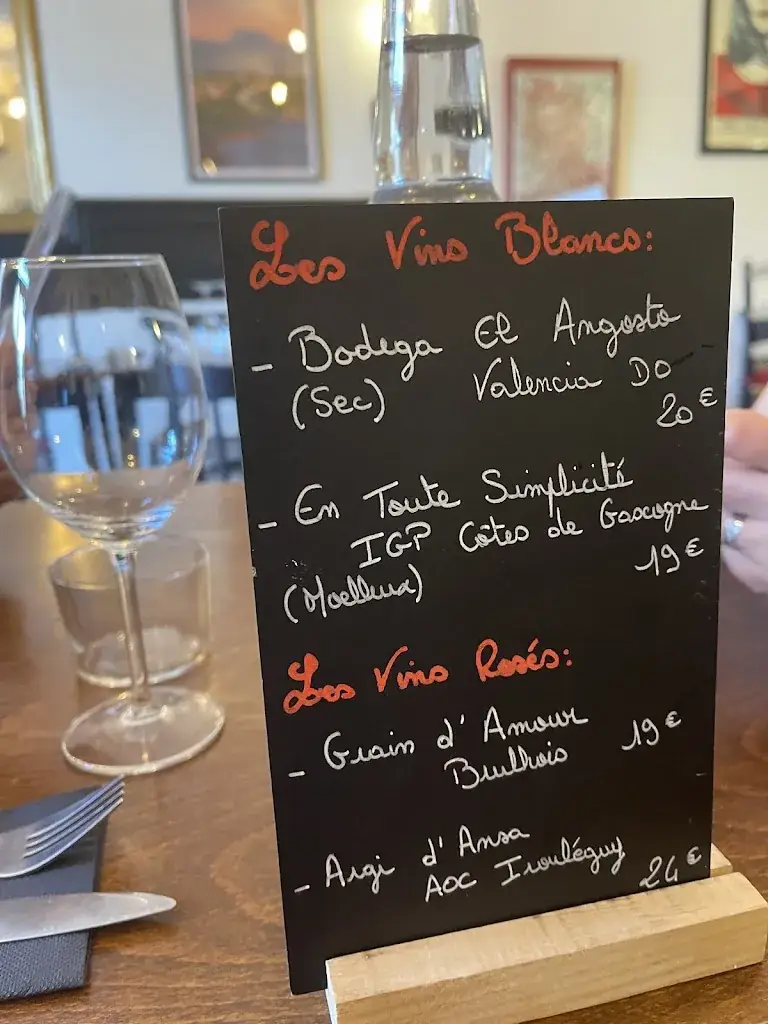 Les Vins Blancs:
- Bodega El Angosto
(Sec) Valencia DO
20€
- En Toute Simplicité
IGP Côtes de Gascogne
(Moelleux) 19€
Les Vins Rosés:
- Grain d'Amour 19€
Brulhois
- Argi d'Ansa
AOC Irouléguy 24€